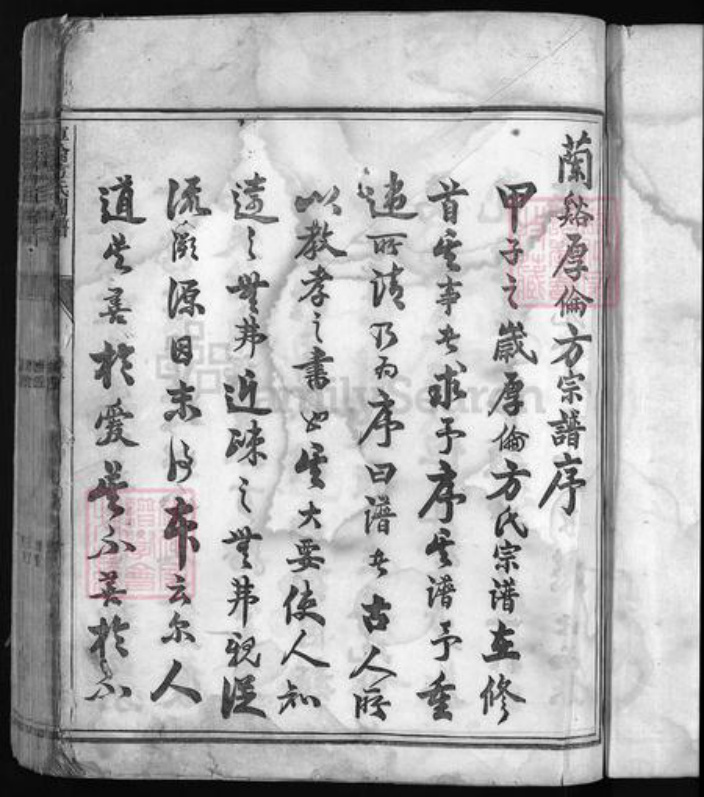 蘭谿厚倫方宗譜序
甲子之歲厚倫方氏宗譜重修
首其事者求予序其譜予重
違所請乃為序曰譜者古人所
以教孝之書也其大要使人知
遠之無弗近疎之無弗親從
流溯源因末得本云爾人
道莫善於愛莫不善於不
FamilySearch